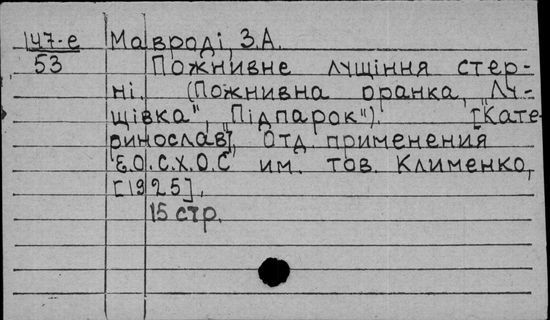 147-е Мавроді, З.А.
53 Пожнивне лущіння стер-
ні. (Пожнивна оранка, "Лу-
щівка", Підпарок"). [Кате-
ринослав], Отд. применения
"Е.О.С.Х.О.С им. тов. Клименко,
[1925].
15 стр.